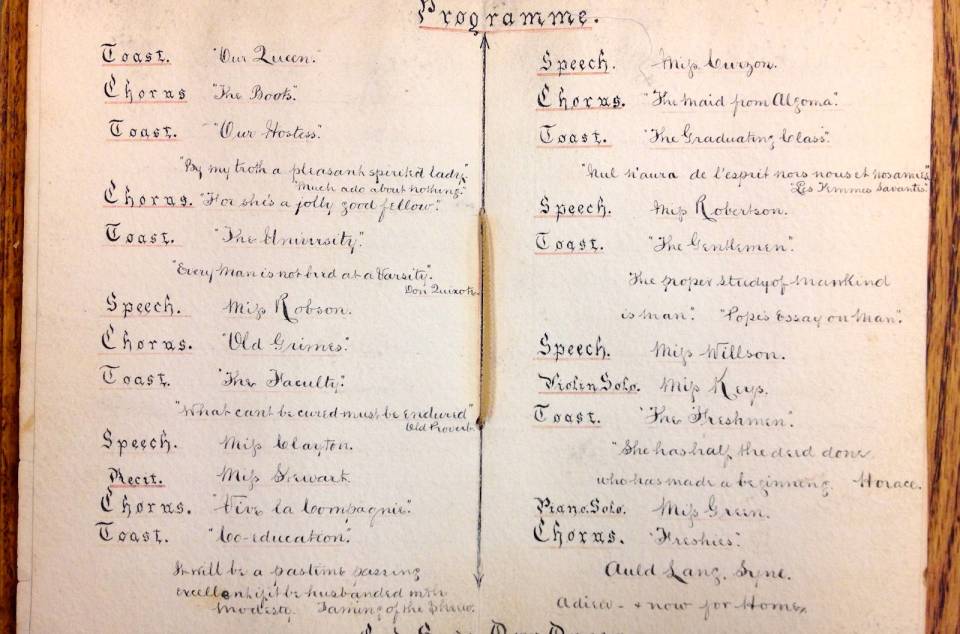 Programme.
Toast. "Our Queen."
Chorus "The Books".
Toast. "Our Hostess".
"By my troth a pleasant spirited lady."
"Much ado about nothing."
Chorus. "For she's a jolly good fellow".
Toast. "The University".
"Every Man is not bred at a Varsity".
Don Quixote.
Speech. Miss Robson.
Chorus. "Old Grimes".
Toast. "The Faculty".
"What cant be cured must be endured"
Old Proverb.
Speech. Miss Clayton.
Recit. Miss Stewart.
Chorus. "Vive la Compagnie".
Toast. "Co-education".
It will be a pastime passing
excellent if it be husbanded with
modesty. Taming of the Shrew.
Speech. Miss Curzon.
Chorus. "The Maid from Algoma".
Toast. "The Graduating Class".
"Nul n'aura de l'esprit hors nous et nos amis"
"Les Femmes Savantes".
Speech. Miss Robertson.
Toast. "The Gentlemen".
The proper study of Mankind
is man". "Pope's Essay on Man".
Speech. Miss Willson.
Violin Solo. Miss Keys.
Toast. "The Freshmen".
"She has half the deed done
who has made a beginning. Horace.
Piano Solo. Miss Green.
Chorus. "Freshies".
Auld Lang Syne.
Adieu - & now for Home.